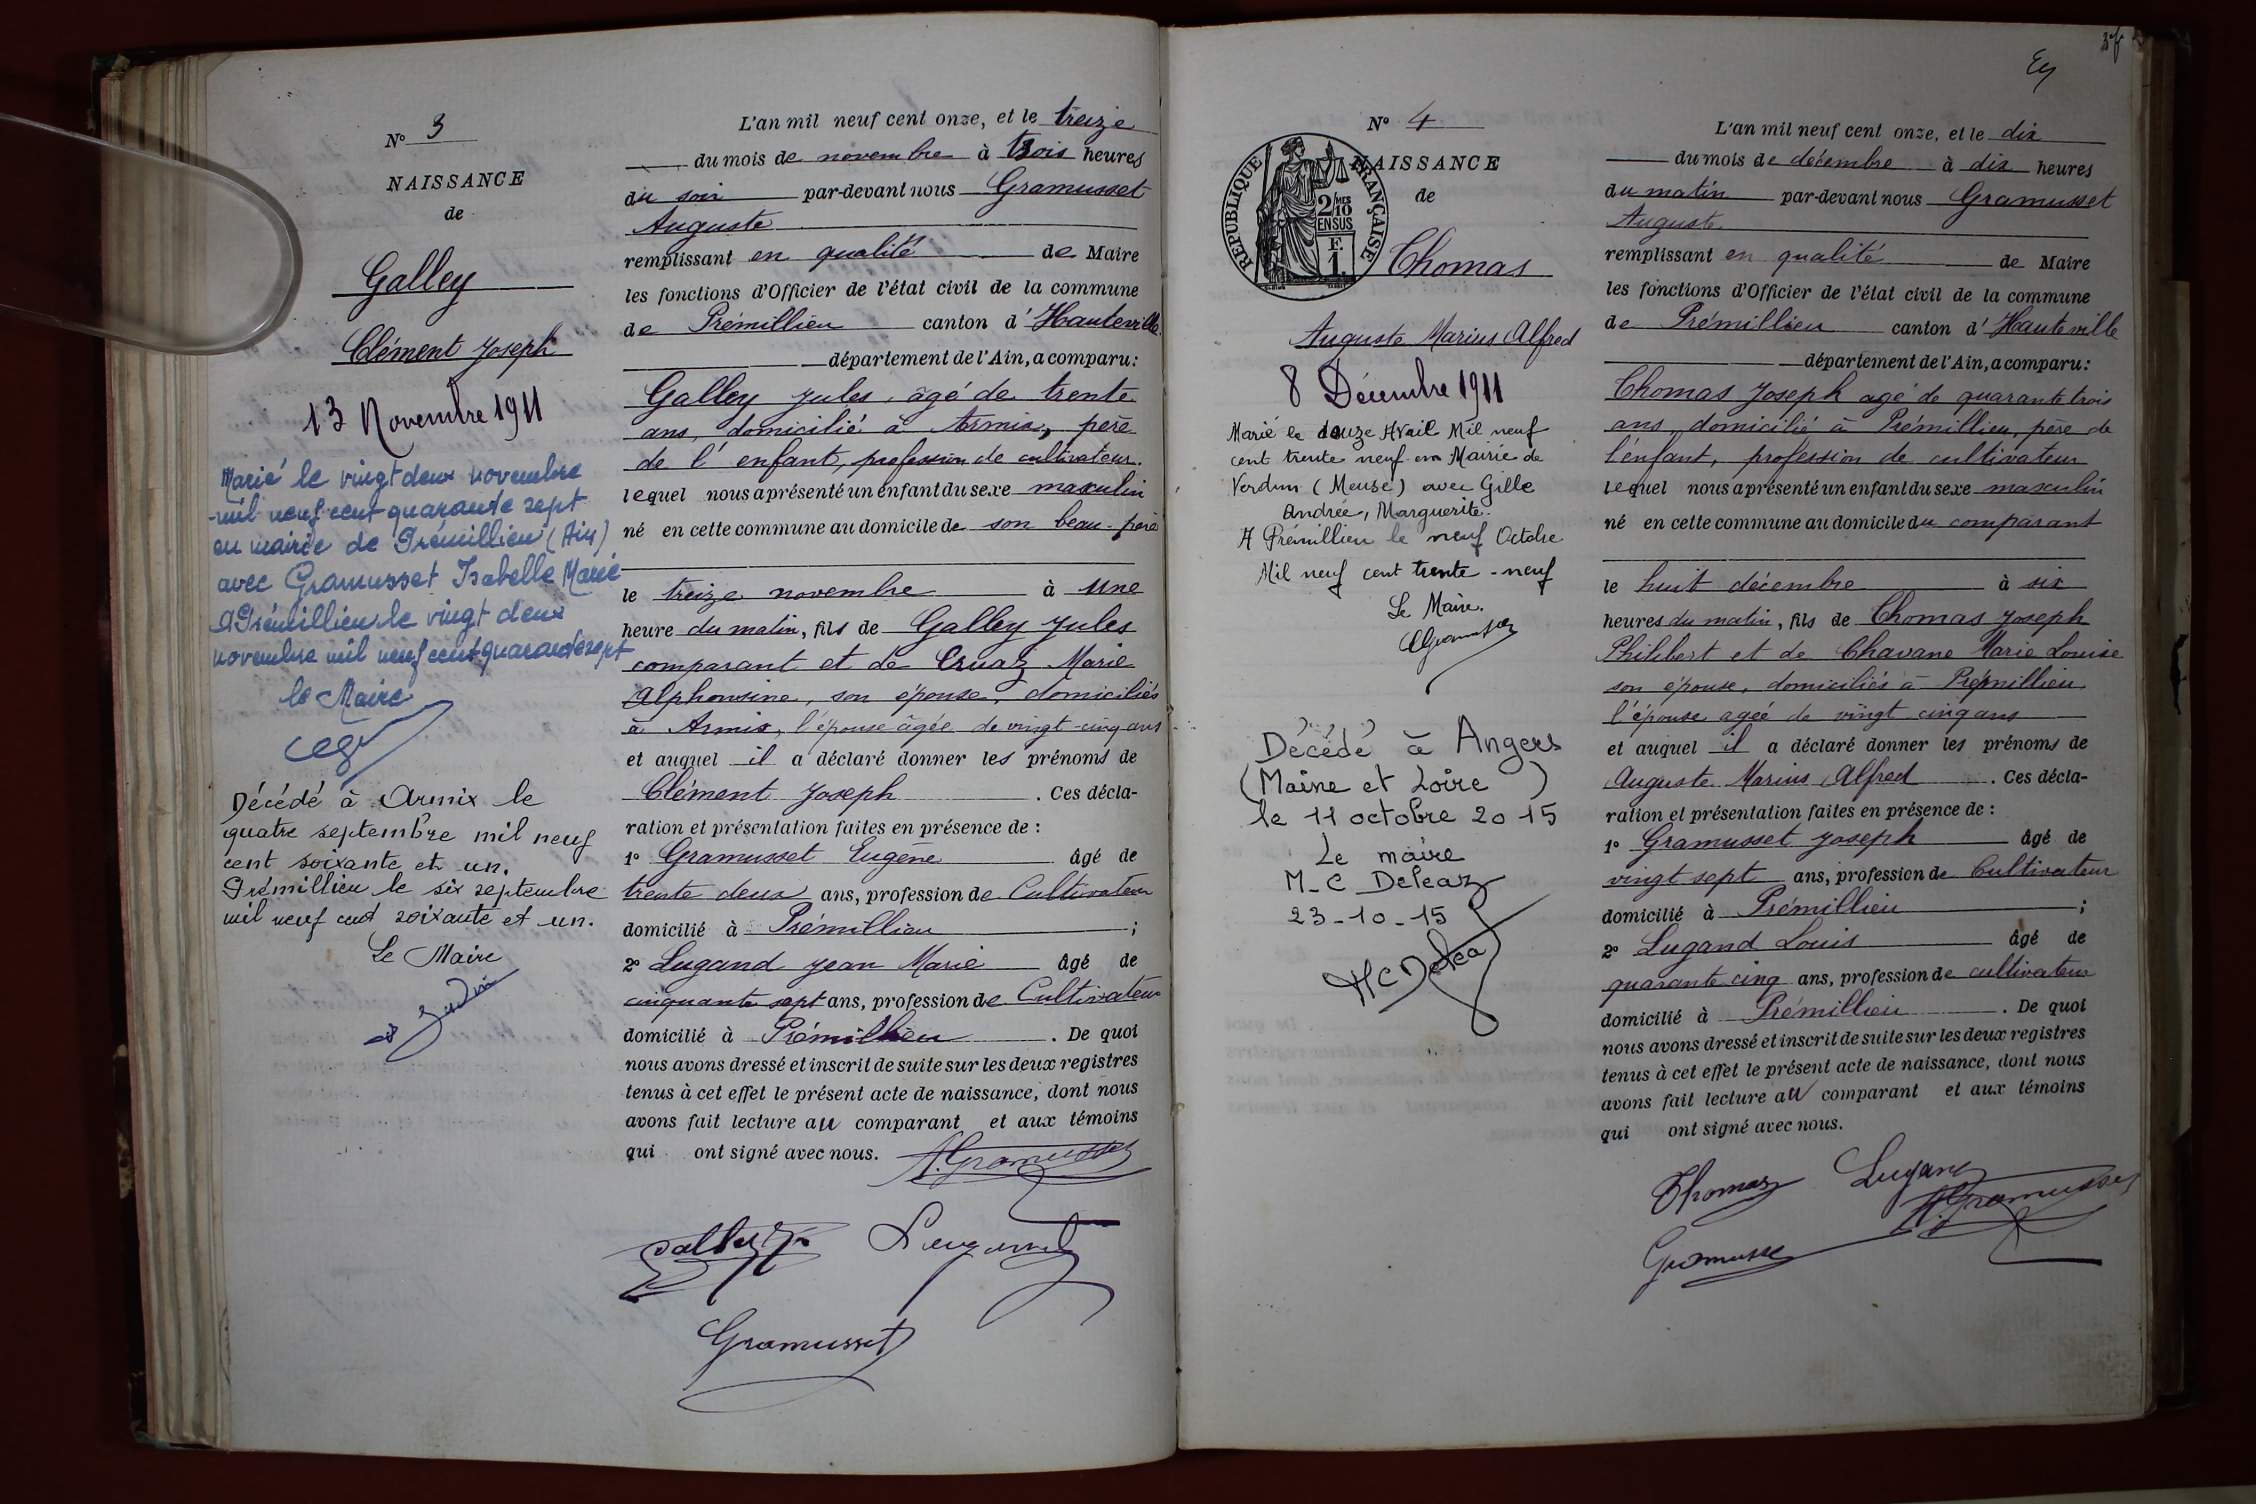 N° 3
NAISSANCE
de
Galley
Clément Joseph
13 Novembre 1911
Marié le vingt deux novembre
mil neuf cent quarante sept
en mairie de Prémillieu (Ain)
avec Gramusset Isabelle Marie
A Prémillieu le vingt deux
novembre mil neuf cent quarante sept
le Maire
Décédé à Armix le
quatre septembre mil neuf
cent soixante et un.
Prémillieu le six septembre
mil neuf cent soixante et un.
Le Maire
L'an mil neuf cent onze, et le treize
du mois de novembre à trois heures
du soir par-devant nous Gramusset
Auguste
remplissant en qualité de Maire
les fonctions d'Officier de l'état civil de la commune
de Prémillieu canton d'Hauteville
département de l'Ain, a comparu:
Galley Jules, âgé de trente
ans, domicilié à Armix, père
de l'enfant, profession de cultivateur.
lequel nous a présenté un enfant du sexe masculin
né en cette commune au domicile de son beau-père
le treize novembre à une
heure du matin, fils de Galley Jules
comparant et de Cruaz Marie
Alphonsine, son épouse, domiciliés
à Armix, l'épouse âgée de vingt-cinq ans
et auquel il a déclaré donner les prénoms de
Clément Joseph . Ces décla-
ration et présentation faites en présence de :
1° Gramusset Eugène âgé de
trente deux ans, profession de Cultivateur
domicilié à Prémillieu ;
2° Lugand Jean Marie âgé de
cinquante sept ans, profession de Cultivateur
domicilié à Prémillieu . De quoi
nous avons dressé et inscrit de suite sur les deux registres
tenus à cet effet le présent acte de naissance, dont nous
avons fait lecture au comparant et aux témoins
qui ont signé avec nous. A. Gramusset
Galley Lugand
Gramusset
N° 4
NAISSANCE
de
REPUBLIQUE FRANÇAISE
2/10 MES
EN SUS
F.
1.
Thomas
Auguste Marius Alfred
8 Décembre 1911
Marié le douze Avril Mil neuf
cent trente neuf en Mairie de
Verdun (Meuse) avec Gille
Andrée, Marguerite.
A Prémillieu le neuf Octobre
Mil neuf cent trente-neuf
Le Maire.
Décédé à Angers
(Maine et Loire )
le 11 octobre 2015
Le maire
M-C Deleaz
23-10-15
MC Deleaz
L'an mil neuf cent onze, et le dix
du mois de décembre à dix heures
du matin par-devant nous Gramusset
Auguste
remplissant en qualité de Maire
les fonctions d'Officier de l'état civil de la commune
de Prémillieu canton d'Hauteville
département de l'Ain, a comparu:
Thomas Joseph agé de quarante trois
ans, domicilié à Prémillieu, père de
l'enfant, profession de cultivateur
lequel nous a présenté un enfant du sexe masculin
né en cette commune au domicile du comparant
le huit décembre à six
heures du matin, fils de Thomas Joseph
Philibert et de Chavane Marie Louise
son épouse, domiciliés à Prémillieu
l'épouse agée de vingt cinq ans
et auquel il a déclaré donner les prénoms de
Auguste Marius Alfred . Ces décla-
ration et présentation faites en présence de :
1° Gramusset Joseph âgé de
vingt sept ans, profession de Cultivateur
domicilié à Prémillieu ;
2° Lugand Louis âgé de
quarante cinq ans, profession de cultivateur
domicilié à Prémillieu . De quoi
nous avons dressé et inscrit de suite sur les deux registres
tenus à cet effet le présent acte de naissance, dont nous
avons fait lecture au comparant et aux témoins
qui ont signé avec nous.
Thomas Lugand
A. Gramusset
Gramusset